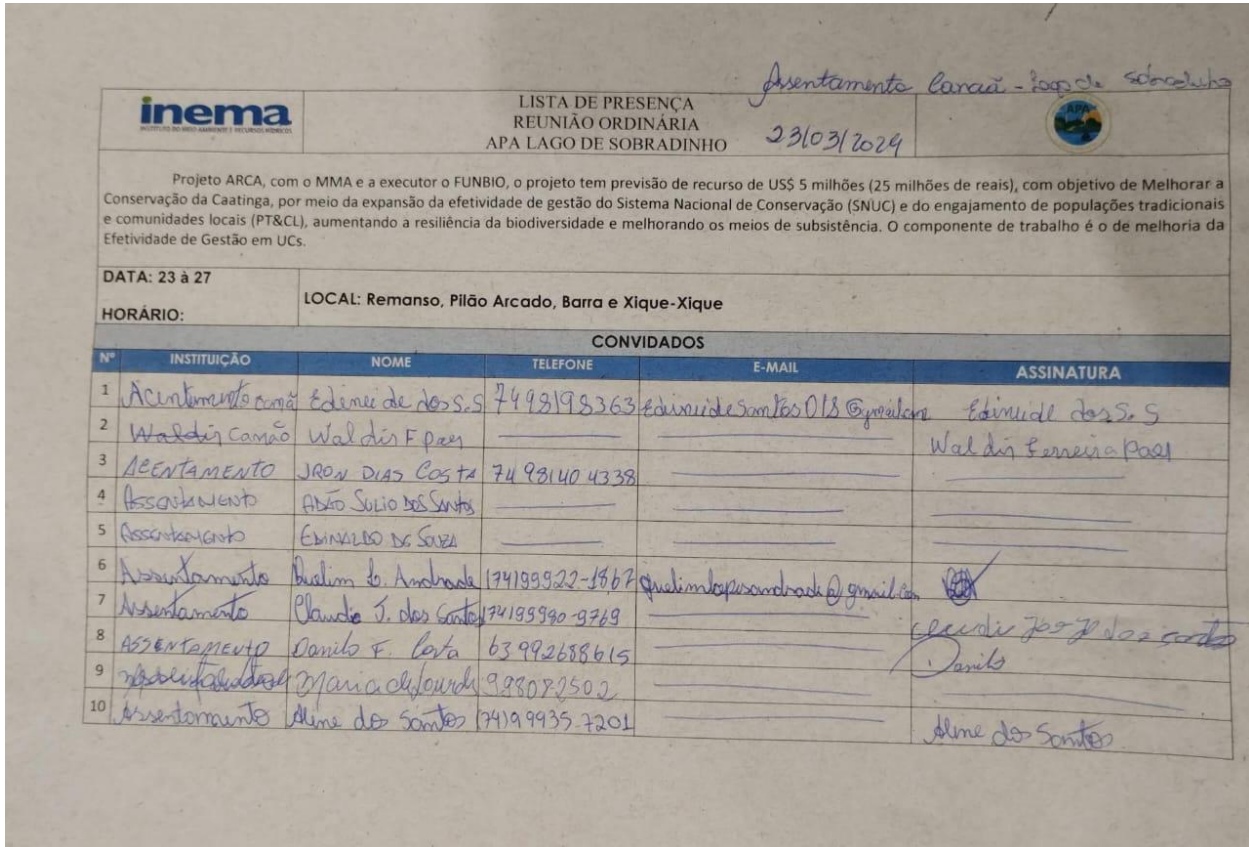 Assentamento Canaã - Lago de Sobradinho
inema
INSTITUTO DO MEIO AMBIENTE E RECURSOS HÍDRICOS
LISTA DE PRESENÇA
REUNIÃO ORDINÁRIA
APA LAGO DE SOBRADINHO
23/03/2024
APA
Projeto ARCA, com o MMA e a executor o FUNBIO, o projeto tem previsão de recurso de US$ 5 milhões (25 milhões de reais), com objetivo de Melhorar a
Conservação da Caatinga, por meio da expansão da efetividade de gestão do Sistema Nacional de Conservação (SNUC) e do engajamento de populações tradicionais
e comunidades locais (PT&CL), aumentando a resiliência da biodiversidade e melhorando os meios de subsistência. O componente de trabalho é o de melhoria da
Efetividade de Gestão em UCs.
DATA: 23 à 27
HORÁRIO:
LOCAL: Remanso, Pilão Arcado, Barra e Xique-Xique
CONVIDADOS
Nº INSTITUIÇÃO NOME TELEFONE E-MAIL ASSINATURA
1 Acentamento canaã Edineide dos S.S 7498198363 Edineide dos S. S
2 Waldir Canaão Waldir F paes Waldir Ferreira Paes
3 ACENTAMENTO JRON DIAS COSTA 74 98140 4338
4 ASSENTAMENTO ADÃO JULIO DOS SANTOS
5 ASSENTAMENTO EDINALDO DE SOUZA
6 Assentamento Andrade (74)99922-1867
7 Assentamento Claudio J. dos Santos (74)99980-9769
8 ASSENTAMENTO Danilo F. Costa 63 992688615 Danilo
9 Maria de Lourde 988082502
10 Assentamento Aline dos Santos (74)9.9935-7201 Aline dos Santos